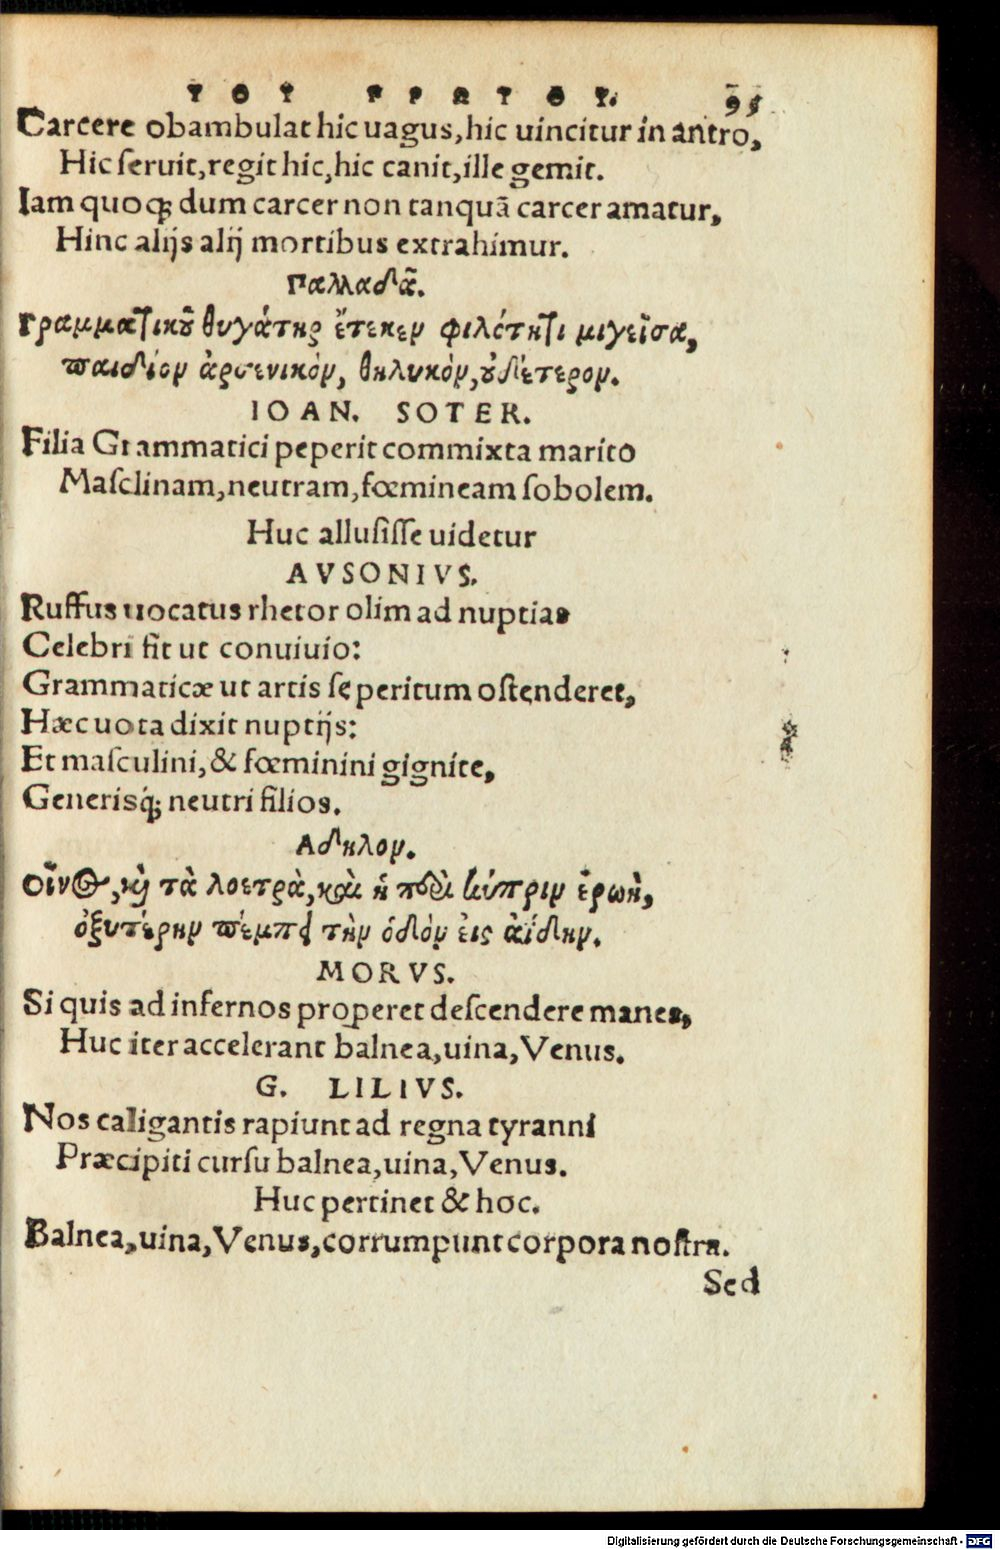 ΤΟΥ ΠΡΩΤΟΥ. 95
Carcere obambulat hic uagus, hic uincitur in antro,
Hic ſeruit, regit hic, hic canit, ille gemit.
Iam quoq; dum carcer non tanquā carcer amatur,
Hinc alijs alij mortibus extrahimur.
Παλλαδᾶ.
Γραμματικοῦ θυγάτηρ ἔτεκεν φιλότητι μιγεῖσα,
παιδίον ἀρσενικὸν, θηλυκὸν, οὐδέτερον.
IOAN. SOTER.
Filia Grammatici peperit commixta marito
Maſclinam, neutram, fœmineam ſobolem.
Huc alluſiſſe uidetur
AVSONIVS.
Ruffus uocatus rhetor olim ad nuptias
Celebri fit ut conuiuio:
Grammaticæ ut artis ſe peritum oſtenderet,
Hæc uota dixit nuptijs:
Et maſculini, & fœminini gignite,
Generisq́; neutri filios.
Αδηλον.
Οἶνος, καὶ τὰ λοετρὰ, καὶ ἡ περὶ κύπριν ἐρωὴ,
ὀξυτέρην πέμπει τὴν ὁδὸν εἰς ἀΐδην.
MORVS.
Si quis ad infernos properet deſcendere manes,
Huc iter accelerant balnea, uina, Venus.
G. LILIVS.
Nos caligantis rapiunt ad regna tyranni
Præcipiti curſu balnea, uina, Venus.
Huc pertinet & hoc.
Balnea, uina, Venus, corrumpunt corpora noſtra.
Sed
Digitalisierung gefördert durch die Deutsche Forschungsgemeinschaft - DFG